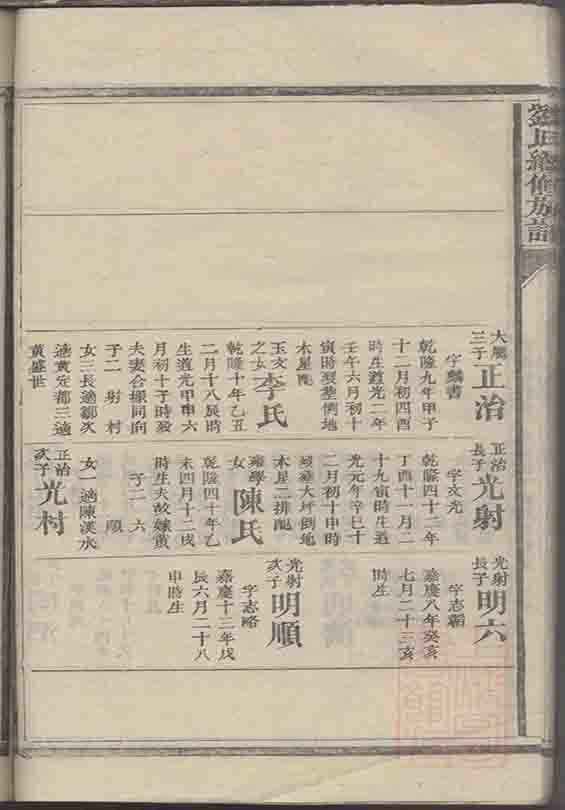 正治
大鵬三子
字麟書
乾隆九年甲子
十二月初四酉
時生道光二年
壬午六月初十
寅時歿葬倒地
木星配
玉文
之女李氏
乾隆十年乙丑
二月十八辰時
生道光甲申六
月初十子時歿
夫妻合塚同向
子二 射 村
女三長適鄒次
適黃定都三適
黃盛世
光射
正治長子
字文光
乾隆四十二年
丁酉十一月二
十九寅時生道
光元年辛巳十
二月初十申時
歿葬大坪倒地
木星二排配
女陳氏
乾隆四十年乙
未四月十二戌
時生夫故嫁黃
子二 六 順
女一適陳漢水
正治次子光村
光射長子明六
字志韜
嘉慶八年癸亥
七月二十三亥
時生
光射次子明順
字志略
嘉慶十三年戊
辰六月二十八
申時生